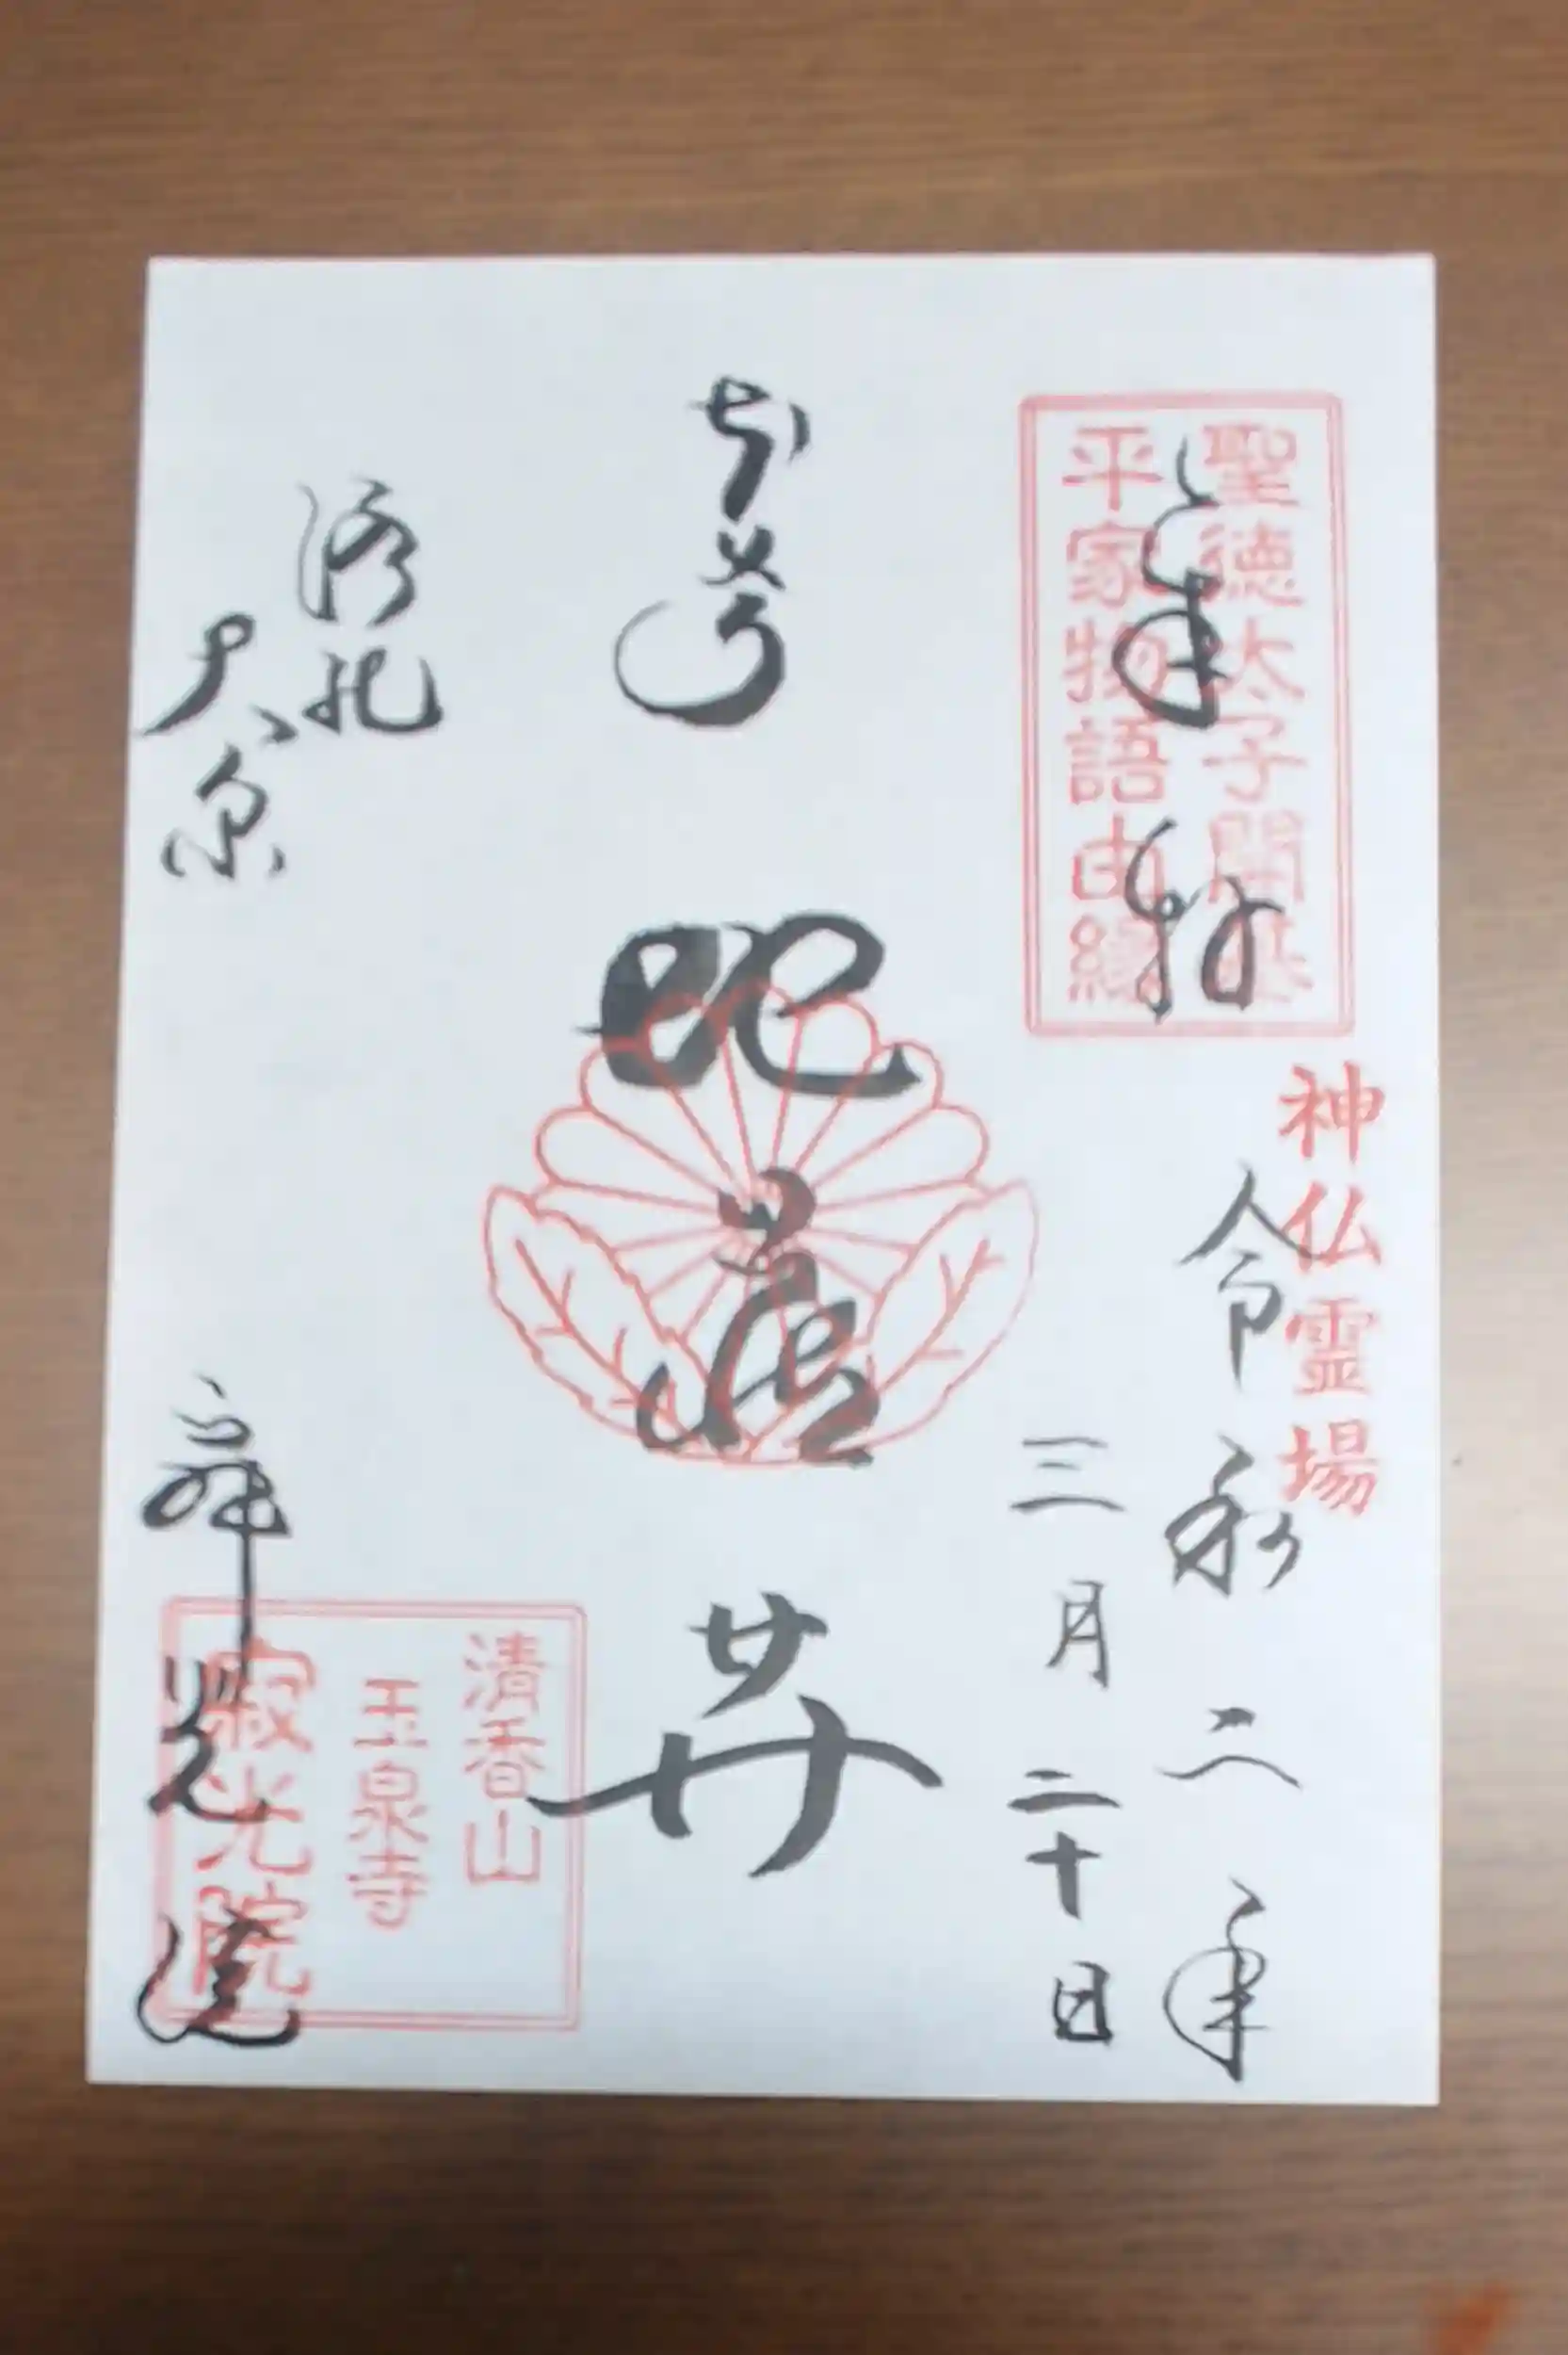 聖徳太子開基
平家物語由緒
奉拝
神仏霊場
令和二年
三月二十日
本尊
地蔵
洛北
大原
清香山
玉泉寺
寂光院
寂光院